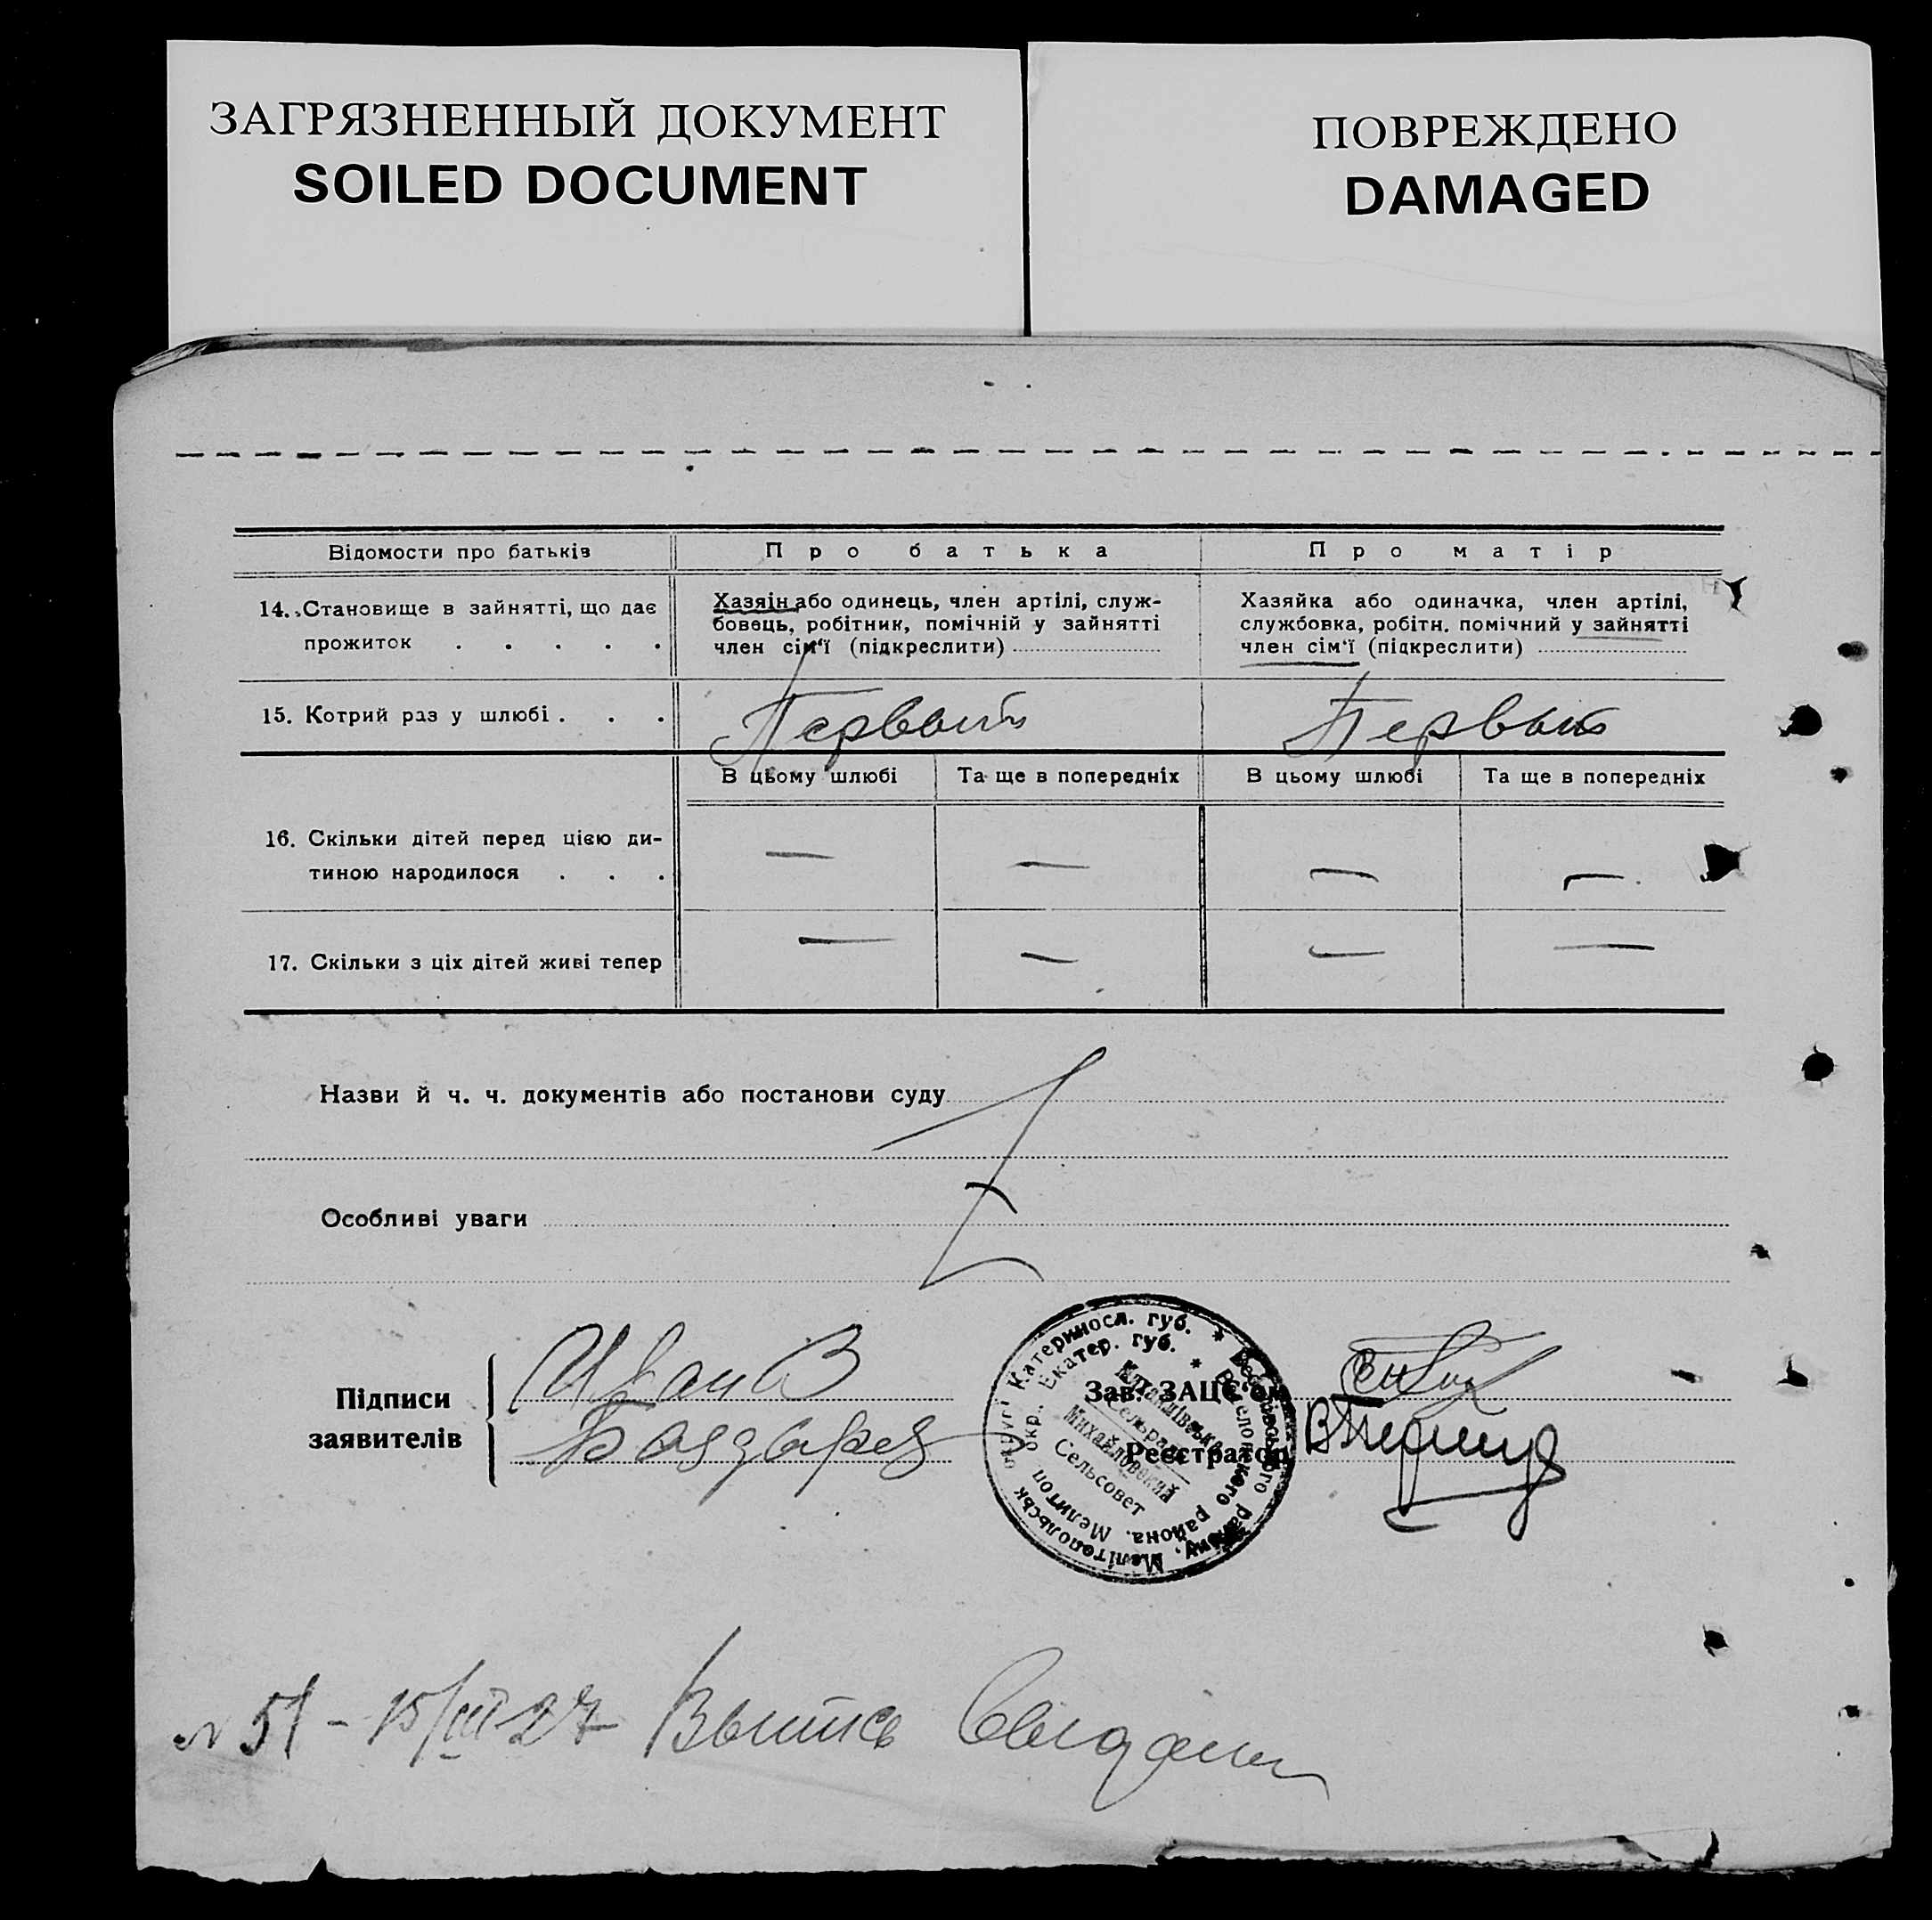 ЗАГРЯЗНЕННЫЙ ДОКУМЕНТ
SOILED DOCUMENT
ПОВРЕЖДЕНО
DAMAGED
Відомости про батьків
Про батька
Про матір
14. Становище в зайнятті, що дає
прожиток . . . . .
Хазяін або одинець, член артілі, служ-
бовець, робітник, помічній у зайнятті
член сім'ї (підкреслити)
Хазяйка або одиначка, член артілі,
службовка, робітн. помічний у зайнятті
член сім'ї (підкреслити)
15. Котрий раз у шлюбі . . .
Первый
Первый
В цьому шлюбі
Та ще в попередніх
В цьому шлюбі
Та ще в попередніх
16. Скільки дітей перед цією ди-
тиною народилося . . .
— — — —
17. Скільки з ціх дітей живі тепер
— — — —
Назви й ч. ч. документів або постанови суду
Особливі уваги
Підписи
заявителів
Иван В
Бондарец
Зав. ЗАЦС'ом
Реєстратор
Мелітопольськ округі Катеринос. губ. * Веселівського району
Мелитоп окр. Екатер. губ. * Веселовского района.
Михайлівська
Сельрада
Михайловский
Сельсовет
№ 51 - 15/III 27 Выпись выдана